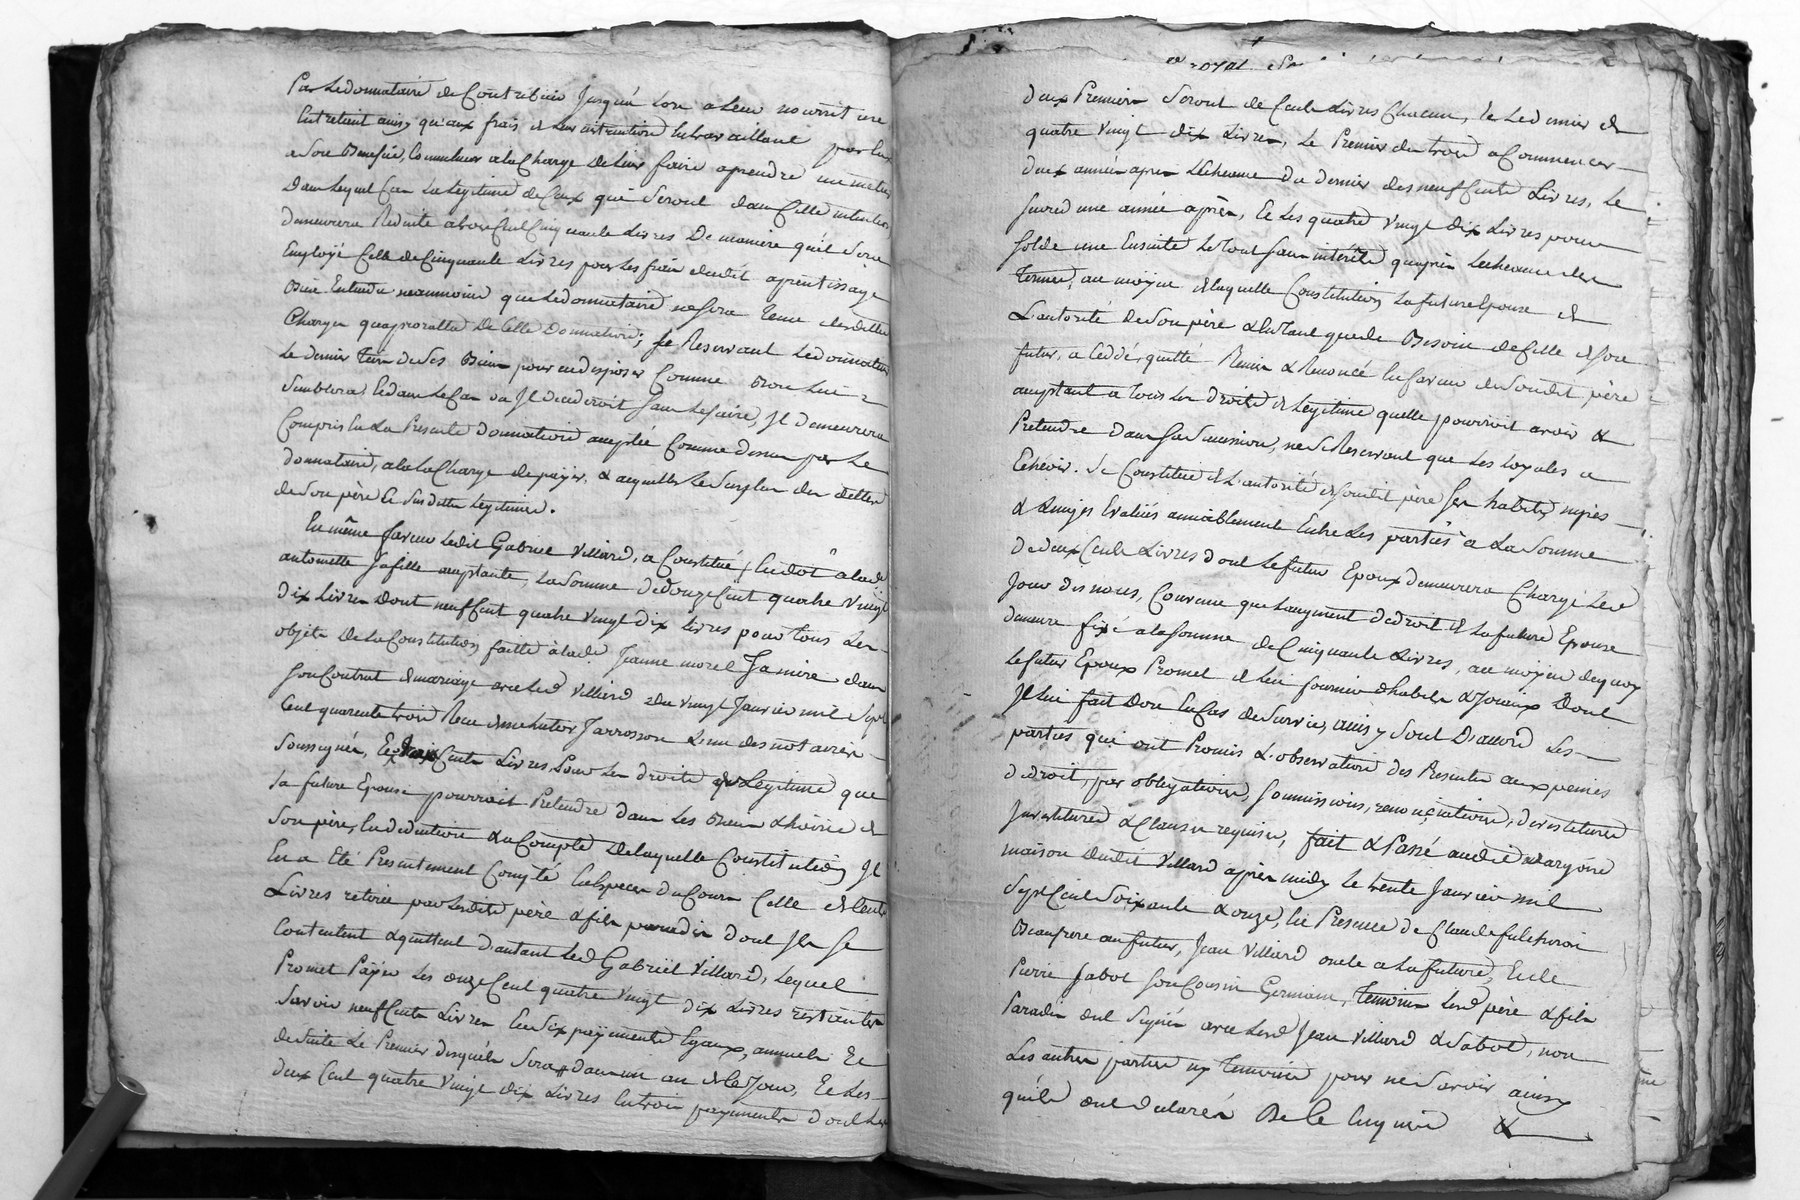 Par Le donnataire de Contribuer Jusqu'a Lors a Leur nourriture
Entretient ainsy qu'aux frais de Leur instruction En travaillant pour Luy
a Son Benefice, Comm a la Charge de Leur faire aprendre un metier
Dans Lequel Cas La Legitime de Ceux qui Seront dans Celle intention
demeurera Reduite a Cent Cinquante Livres De maniere qu'il Sera
Employé Celle de Cinquante Livres pour Les frais dudit aprentissage
Bien Entendu neanmoins que Le donnataire ne Sera Tenu des dettes
Charges qu'a prorata De Celle Donnation; Se Reservant Le donnateur
Le dernier Tiers de Ses Biens pour en disposer Comme Bon Lui
Semblera, Et dans Le Cas ou Il decederoit Sans Le faire, Il demeurera
Compris En La Presente Donnation acceptée Comme dessus par Le
donnataire, a la Charge de payer, & acquitter Le Surplus des dettes
de Son père Et Susdittes Legitimes.
En même faveur Ledit Gabriel Villard, a Constitué En dot à lad.
antoinette Sa fille acceptante, La Somme De douze Cent quatre Vingt
dix Livres Dont neuf Cent quatre Vingt Dix Livres pour Tous Les
objets De La Constitution faitte à lad. Jeanne morel Sa mère dans
Son Contrat de mariage avec Led Villard du vingt Janvier mil Sept
Cent quarante trois Recu Jarrosson L'un des notaires
Soussignés, Et Cents Livres Pour Les droits de Legitime que
la future Epouse pourroit Pretendre dans Les Biens & hoirie de
Son père, En deduction & a Compte De laquelle Constitution Il
En a Eté Presentement Compté En Especes du Cours Celle de Cent
Livres retirée par Lesdits père & fils paradis dont Ils Se
Contentent & quittent d'autant Led Gabriël Villard, Lequel
Promet Païer Les onze Cent quatre Vingt dix Livres restantes
Savoir neuf Cents Livres En Six payements Egaux, annuels Et
de Suitte Le Premier desquels Sera dans un an de Ce Jour, Et Les
deux Cent quatre Vingt dix Livres En trois payements dont Les
deux Premiers Seront de Cent Livres Chacun, Et Le dernier de
quatre Vingt dix Livres, Le Premier des trois a Commencer
deux années apres L'echeance du dernier des neuf Cents Livres, Le
Second une année après, Et Les quatre Vingt Dix Livres pour
Solde une Ensuitte Le Tout Sans intérêts qu'après L'echeance des
Termes, au moÿen de laquelle Constitution La future Epouse de
L'autorité De Son père & En Tant que de Besoin de Celle de Son
futur, a Ceddé, quitté Remis & Renoncé En faveur de Son dit père
acceptant a Tous Les droits de Legitime quelle pourroit avoir &
Pretendre dans Sa Succession, ne Se Reservant que Les Loyales a
Echéoir. Se Constitue de L'autorité de Son dit père Ses habits, nipes
& Linges Evalués amiablement Entre Les parties a La Somme
De deux Cents Livres dont Le futur Epoux demeurera Chargé Le
Jour des noces, Convenu que L'augment de droit de La future Epouse
demeure fixé a la Somme de Cinquante Livres, au moyen de quoy
Le futur Epoux Promet de Lui fournir d'habits & Joïaux Dont
Il Lui fait Don En Cas de Survie, ainsy Sont D'accord Les
parties qui ont Promis L'observation des Presentes aux peines
de droit, par obligations, Soumissions, renonciations, devestitures
Investitures & Clauses requises, fait & Passé audit
maison dudit Villard après midy Le trente Janvier mil
Sept Cent Soixante & onze, En Presence de Claude fulchiron
Beaufrere au futur, Jean Villard oncle a La future, Et de
Pierre Sabot Son Cousin Germain, Temoins Lesd père & fils
Paradis ont Signés avec Lesd Jean Villard & Sabot, non
Les autres parties ny Temoins pour ne Savoir ainsy
qu'ils ont declarés De Ce Enquis &